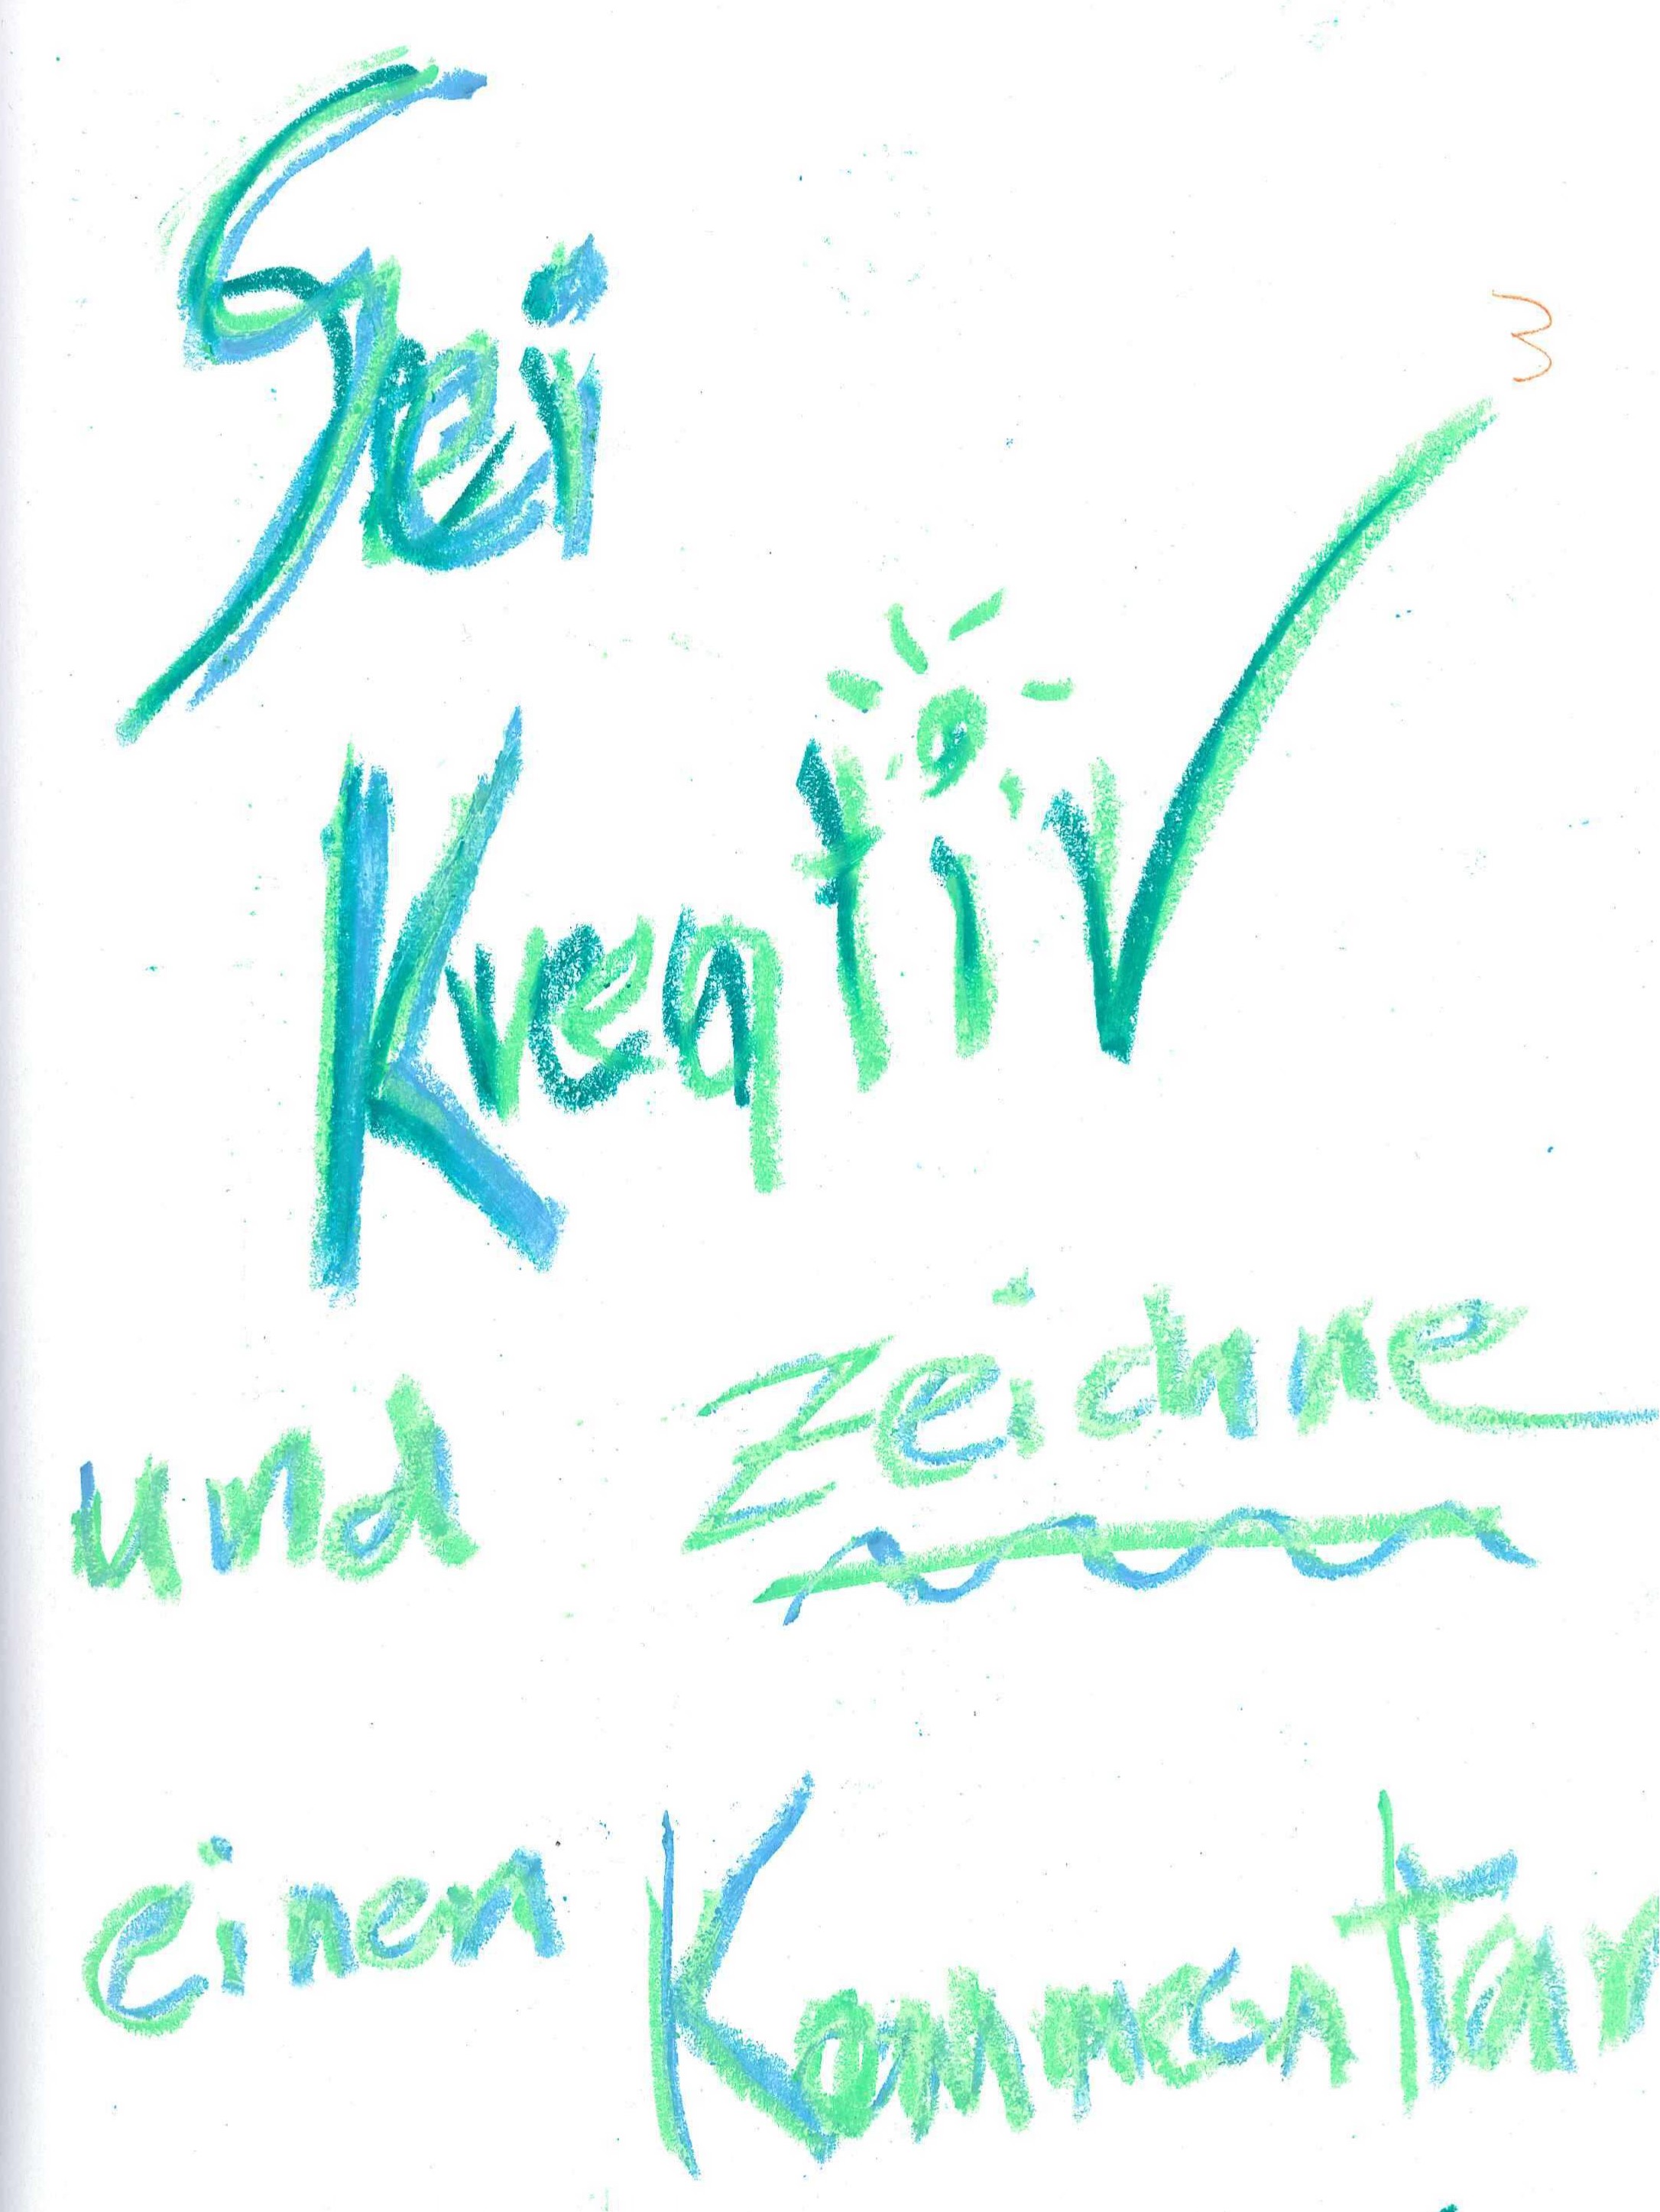 Sei
3
Kreativ
und zeichne
einen Kommentar